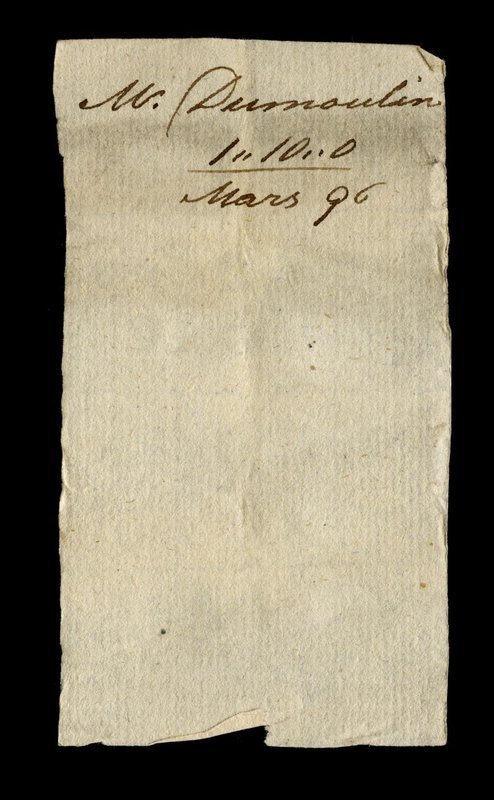 Mr. Dumoulin
1,,10,,0
Mars 96